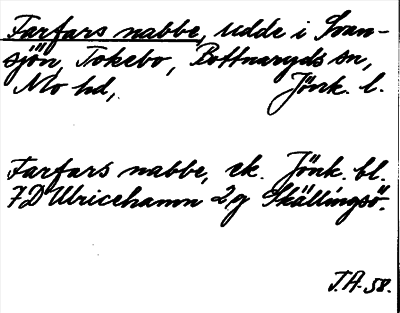 Farfars nabbe, udde i Svan-
sjön, Tokebo, Bottnaryds sn,
Mo hd, Jönk. l.
Farfars nabbe, ek. Jönk. bl.
7D Ulricehamn 2g Skällingsö.
J.A. 58.